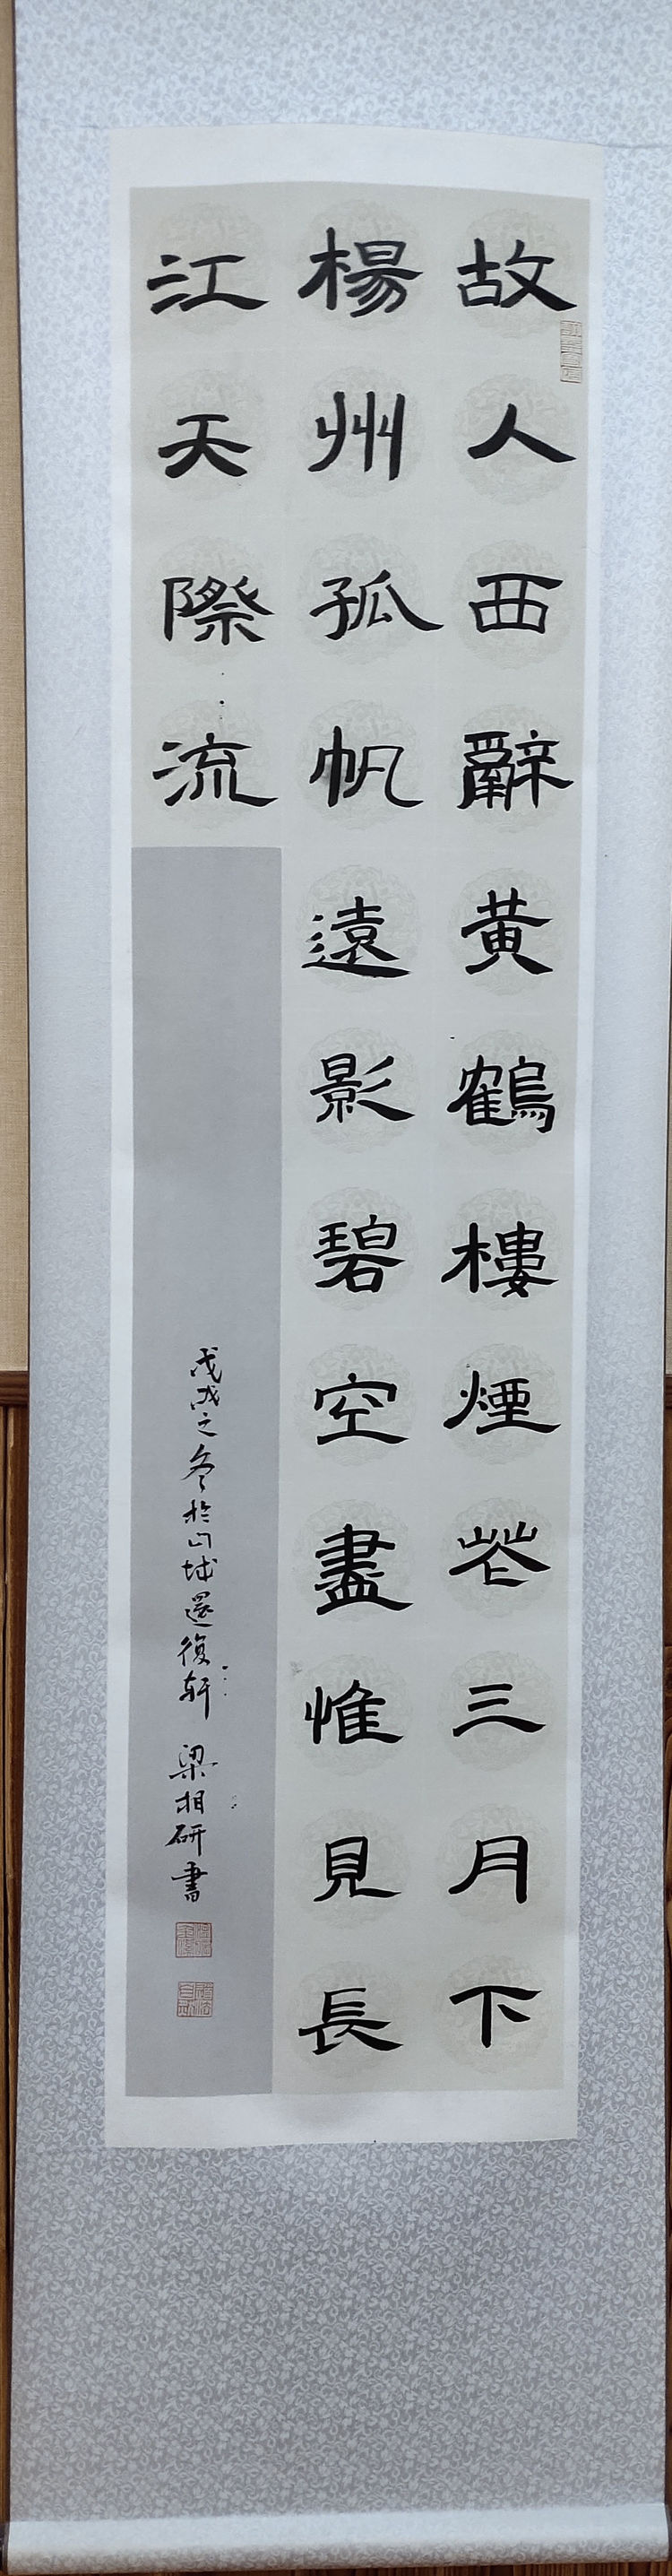 故人西辭黃鶴樓煙花三月下
楊州孤帆遠影碧空盡惟見長
江天際流
戊戌之冬於山城還復軒 梁相研書